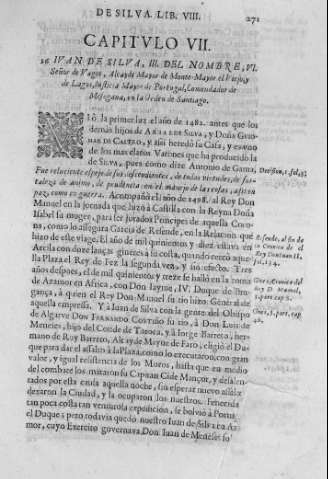 DE SILVA. LIB. VIII.
271
CAPITVLO VII.
26 IVAN DE SILVA, III. DEL NOMBRE, VI.
Señor de Vagos, Alcayde Mayor de Monte-Mayor el Viejo, y
de Lagos, Justicia Mayor de Portugal, Comendador de
Messejana, en la Orden de Santiago.
Viò la primer luz el año de 1482. antes que los
demàs hijos de ARIAS DE SILVA, y DOÑA GUIO-
MAR DE CASTRO, y assi heredò su Casa, y es vno
de los mas claros Varones que ha producido la
de SILVA, pues como dize Antonio de Gama,
Fue reluciente espejo de sus descendientes, de todas virtudes, de for-
taleza de animo, de prudencia en el manejo de las cosas, assi en
paz, como en guerra. Acompañò el año de 1498. al Rey Don
Manuel en la jornada que hizò à Castilla con la Reyna Doña
Isabel su muger, para ser jurados Principes de aquella Coro-
na, como lo assegura Garcia de Resende, en la Relacion que
hizo de este viage. El año de mil quinientos y diez estava en
Arcila con doze lanças gineta à su costa, quando cercò aque-
lla Plaça el Rey de Fez la segunda vez, y sin efecto. Tres
años despues, el de mil quinientos y treze se hallò en la toma
de Azamor en Africa, con Don Iayme, IV. Duque de Bra-
gança, à quien el Rey Don Manuel su tio hizo General de
aquella empressa. Y à Juan de Silva con la gente del Obispo
de Algarve DON FERNANDO COSTIÑO su tio, à Don Luis de
Meneses, hijo del Conde de Taroca, y à Jorge Barreto, her-
mano de Ruy Barreto, Alcayde Mayor de Faro, eligiò el Du-
que para dar el assalto à la Plaza, como lo executaron con gran
valor, y igual resistencia de los Moros, hasta que en medio
del combate los mataron su Capitan Cide Mançor, y desalen-
tados por esta causa aquella noche, sin esperar nuevo assalto
dexaron la Ciudad, y la ocuparon los nuestros. Fenecida
tan poca costa tan venturosa expedicion, se bolviò à Portugal
el Duque; pero todavia quedò nuestro Iuan de Silva en Aza-
mor, cuyo Exercito governava Don Iuan de Meneses su
Resende, al fin de
la Cronica de el
Rey Don Iuan II.